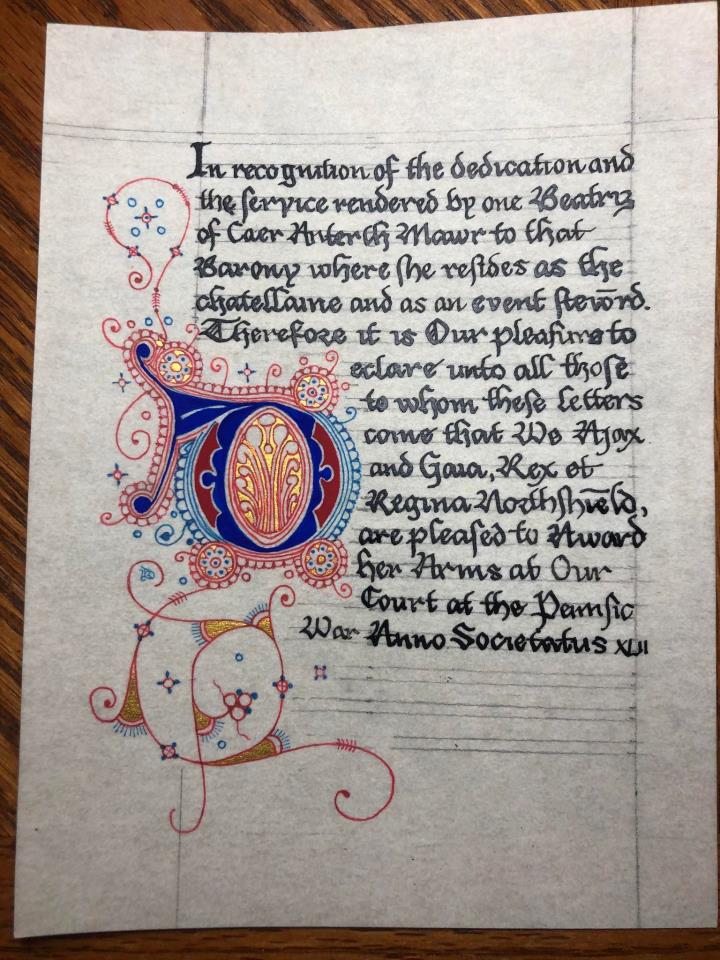 In recognition of the dedication and
the ſervice rendered by one Beatriz
of Caer Anterth Mawr to that
Barony where ſhe reſides as the
chatellaine and as an event ſteword.
Therefore it is Our pleaſure to
Declare unto all thoſe
to whom theſe letters
come that We Ajax
and Gaia, Rex et
Regina Northſhield,
are pleaſed to Award
her Arms at Our
Court at the Pennſic
War Anno Societatus XLII